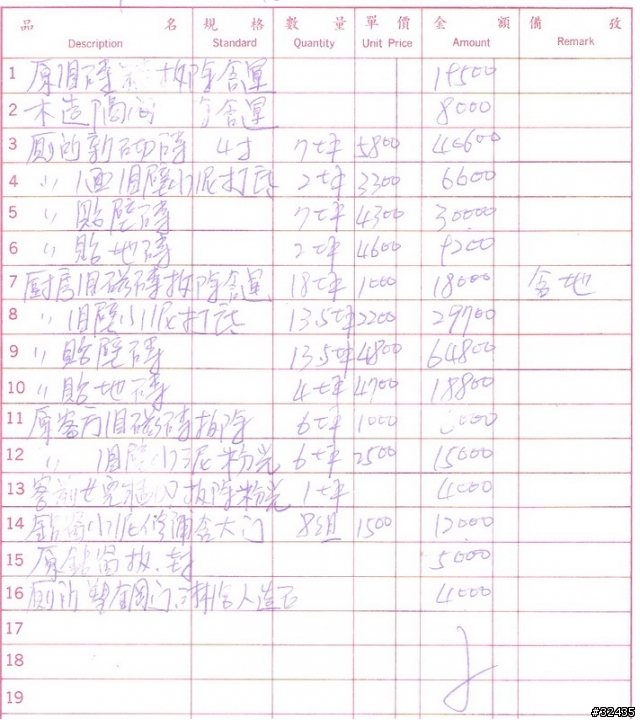 品名 規格 數量 單價 金額 備攷
Description Standard Quantity Unit Price Amount Remark
1 原旧磚 拆除含運 19500
2 木造隔间 含運 8000
3 厠所新砌磚 4寸 7坪 5800 40600
4 〃 旧壁水泥打底 2坪 3300 6600
5 〃 貼壁磚 7坪 4300 30000
6 〃 貼地磚 2坪 4600 9200
7 厨房旧磁磚拆除含運 18坪 1000 18000 含地
8 〃 旧壁水泥打底 13.5坪 2200 29700
9 〃 貼壁磚 13.5坪 4800 64800
10 〃 貼地磚 4坪 4700 18800
11 原客厅旧磁磚拆除 6坪 1000 000
12 〃 旧壁水泥粉光 6坪 2500 15000
13 拆除粉光 1坪 4000
14 鋁窗水泥 含大门 8組 1500 12000
15 原鋁窗拆.封 5000
16 厠所 含人造石 4000
17
18
19
#32435